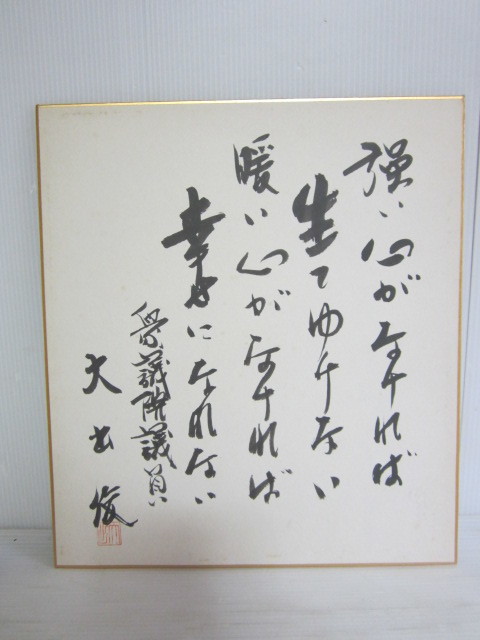 強い心がなければ
生てゆけない
暖い心がなければ
幸せになれない
衆議院議員
大出俊